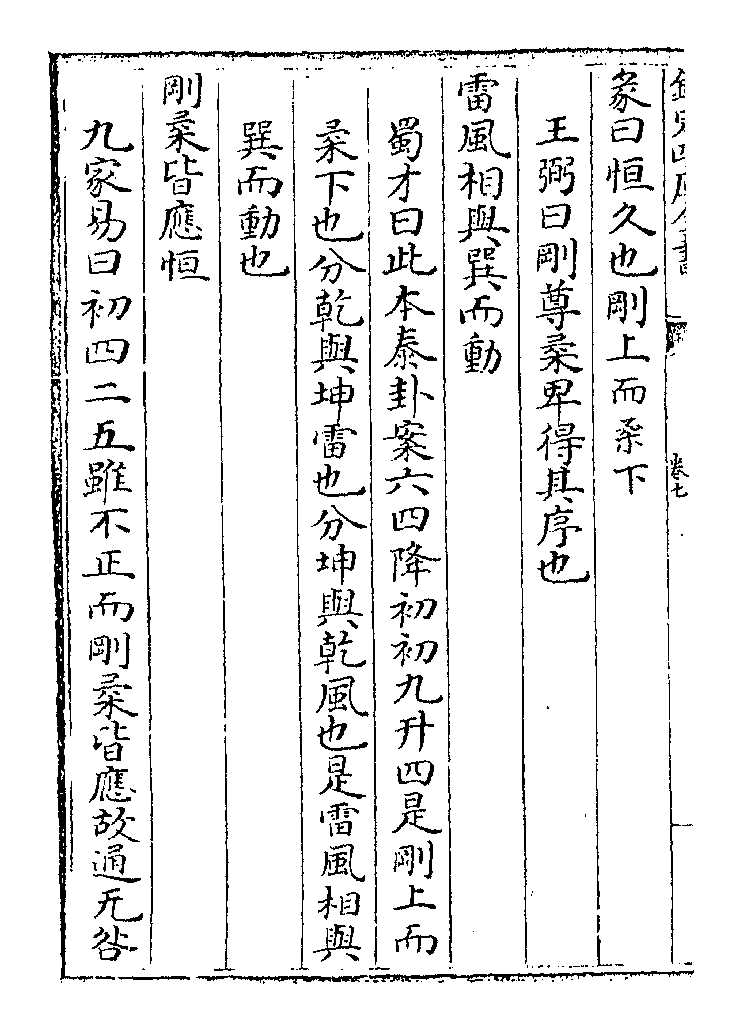 欽定四庫全書
卷七
彖曰恒久也剛上而柔下
王弼曰剛尊柔卑得其序也
雷風相與巽而動
蜀才曰此本泰卦案六四降初初九升四是剛上而
柔下也分乾與坤雷也分坤與乾風也是雷風相與
巽而動也
剛柔皆應恒
九家易曰初四二五雖不正而剛柔皆應故通无咎